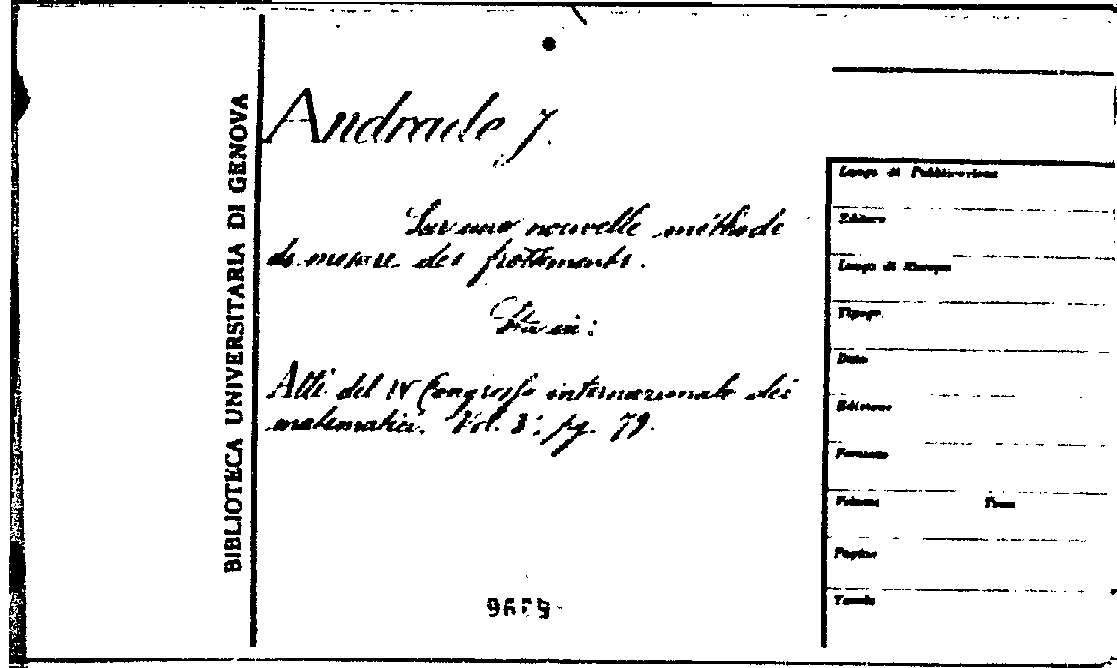 BIBLIOTECA UNIVERSITARIA DI GENOVA
Andrade J.
Sur une nouvelle méthode
de mesure des frottements.
Sta in:
Atti del IV Congresso internazionale dei
matematici. Vol. 3°. pg. 79.
Luogo di Pubblicazione
Editore
Luogo di Stampa
Tipogr.
Data
Edizione
Formato
Volume Tomo
Pagine
Tavole